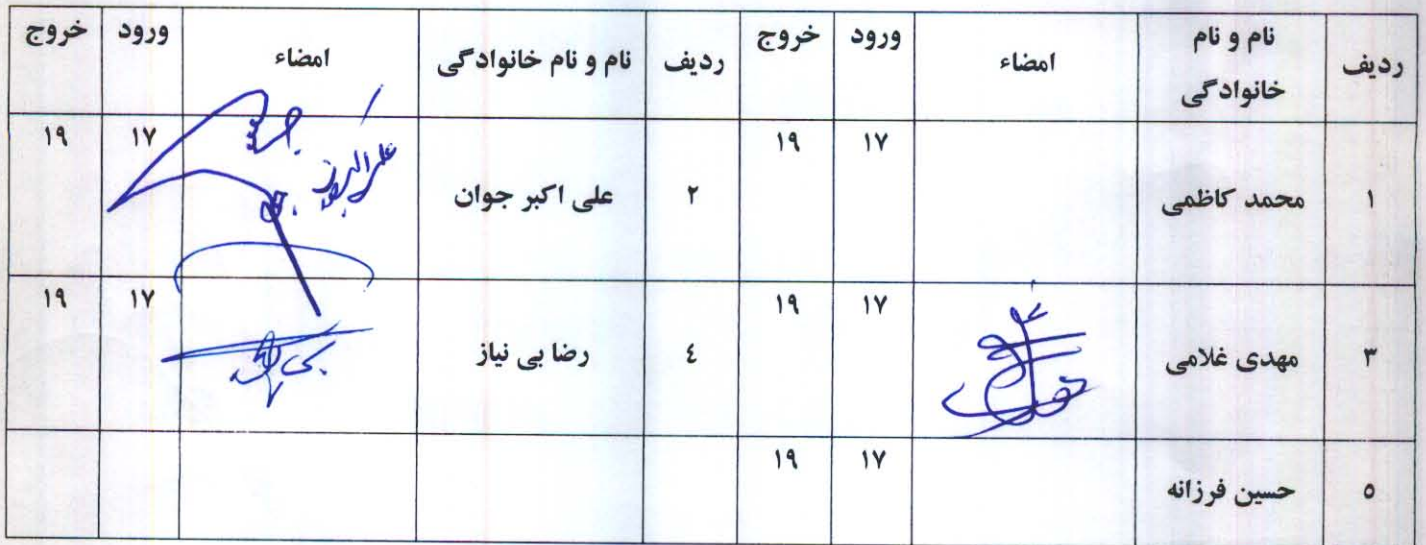 ردیف نام و نام خانوادگی امضاء ورود خروج ردیف نام و نام خانوادگی امضاء ورود خروج
۱ محمد کاظمی ۱۷ ۱۹ ۲ علی اکبر جوان ۱۷ ۱۹
۳ مهدی غلامی ۱۷ ۱۹ ٤ رضا بی نیاز ۱۷ ۱۹
٥ حسین فرزانه ۱۷ ۱۹